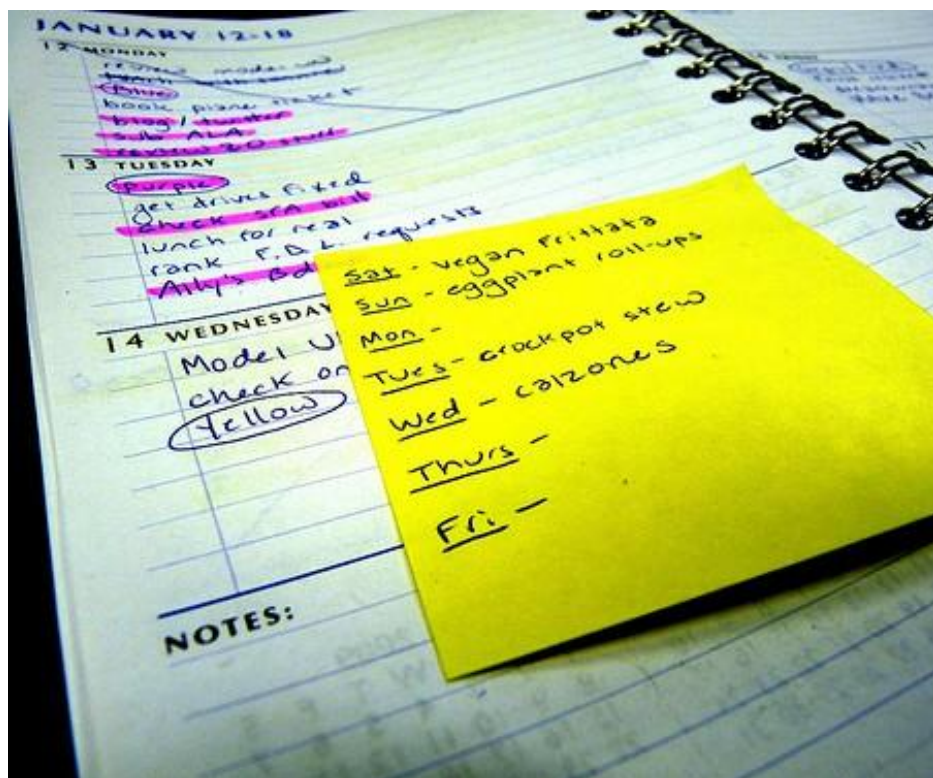 JANUARY 12-18
12 MONDAY
review model un
Blue
book plane ticket
blog / twitter
sub ALA
review 20 stuff
13 TUESDAY
purple
get drives fixed
check SCA bill
lunch for real
rank F.B.L. requests
Ally's Bd
14 WEDNESDAY
Model U
check on
Yellow
NOTES:
Sat - vegan frittata
Sun - eggplant roll-ups
Mon -
Tues - crockpot stew
Wed - calzones
Thurs -
Fri -
FRIDAY
17